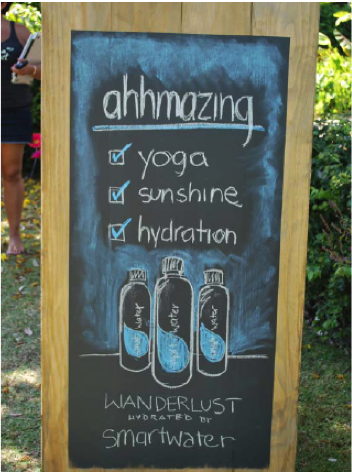 ahhmazing
yoga
sunshine
hydration
water
water
water
WANDERLUST
HYDRATED BY
smartwater